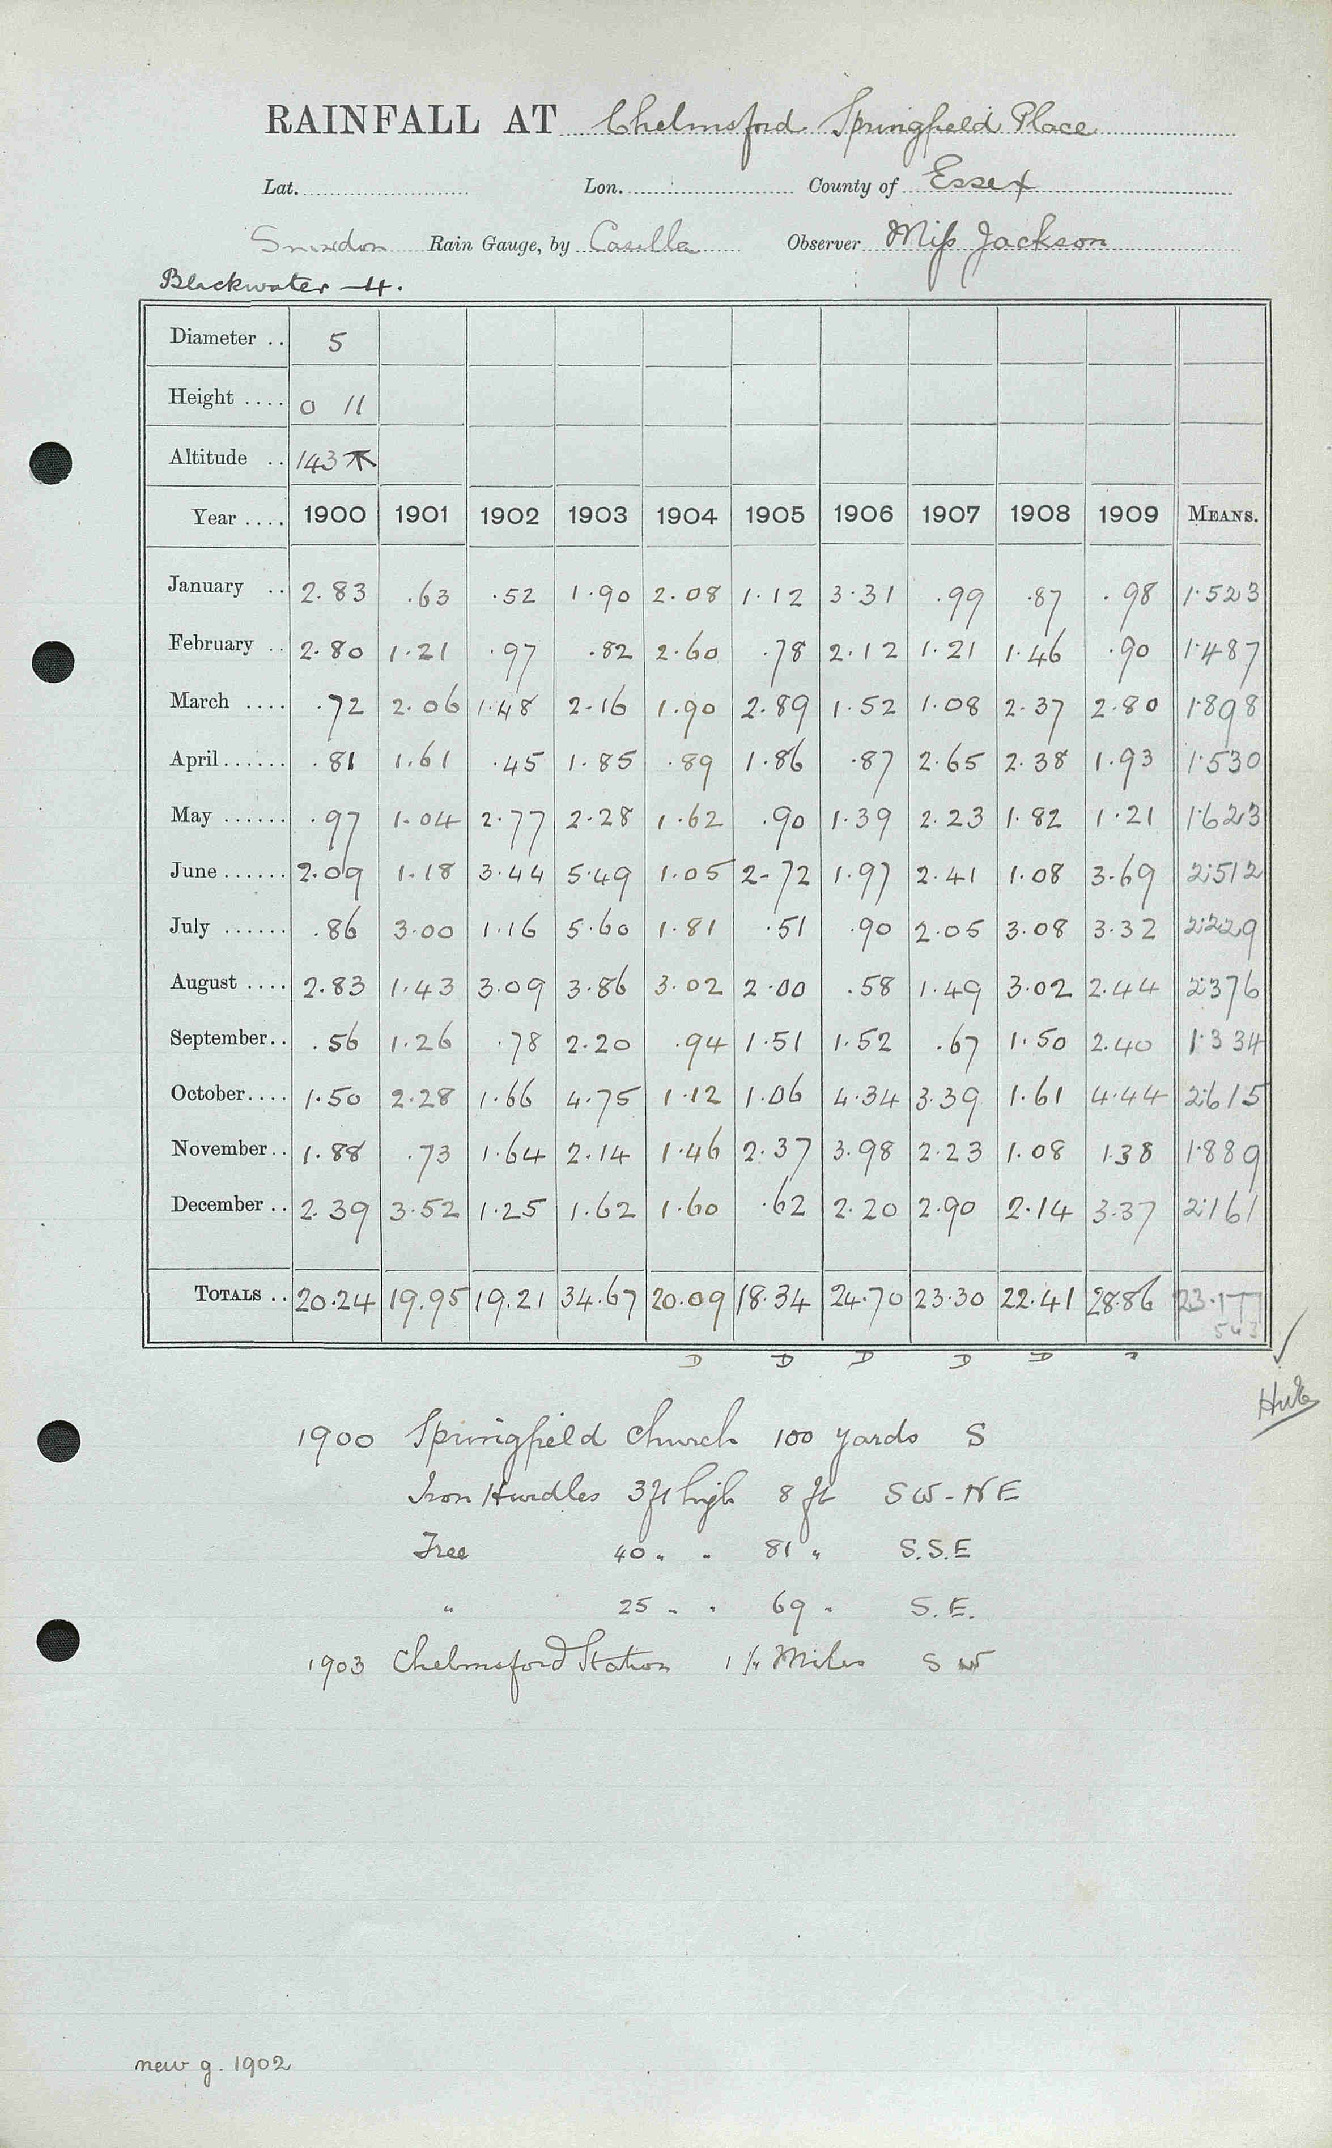 RAINFALL AT Chelmsford Springfield Place
Lat. Lon. County of Essex
Snowdon Rain Gauge, by Casella Observer Miss Jackson
Blackwater - 4.
Diameter .. 5
Height .... 0 11
Altitude .. 143
Year .... 1900 1901 1902 1903 1904 1905 1906 1907 1908 1909 MEANS.
January .. 2.83 .63 .52 1.90 2.08 1.12 3.31 .99 .87 .98 1.523
February .. 2.80 1.21 .97 .82 2.60 .78 2.12 1.21 1.46 .90 1.487
March .... .72 2.06 1.48 2.16 1.90 2.89 1.52 1.08 2.37 2.80 1.898
April ...... .81 1.61 .45 1.85 .89 1.86 .87 2.65 2.38 1.93 1.530
May ...... .97 1.04 2.77 2.28 1.62 .90 1.39 2.23 1.82 1.21 1.623
June ...... 2.09 1.18 3.44 5.49 1.05 2.72 1.97 2.41 1.08 3.69 2.512
July ...... .86 3.00 1.16 5.60 1.81 .51 .90 2.05 3.08 3.32 2.229
August .... 2.83 1.43 3.09 3.86 3.02 2.00 .58 1.49 3.02 2.44 2.376
September.. .56 1.26 .78 2.20 .94 1.51 1.52 .67 1.50 2.40 1.334
October.... 1.50 2.28 1.66 4.75 1.12 1.06 4.34 3.39 1.61 4.44 2.615
November.. 1.88 .73 1.64 2.14 1.46 2.37 3.98 2.23 1.08 1.38 1.889
December .. 2.39 3.52 1.25 1.62 1.60 .62 2.20 2.90 2.14 3.37 2.161
TOTALS .. 20.24 19.95 19.21 34.67 20.09 18.34 24.70 23.30 22.41 28.86 23.177
D D D D D
1900 Springfield Church 100 yards S
Iron Hurdles 3 ft high 8 ft SW - NE
Tree 40 " " 81 " S.S.E
" 25 " " 69 " S.E.
1903 Chelmsford Station 1 1/4 Miles SW
new g. 1902